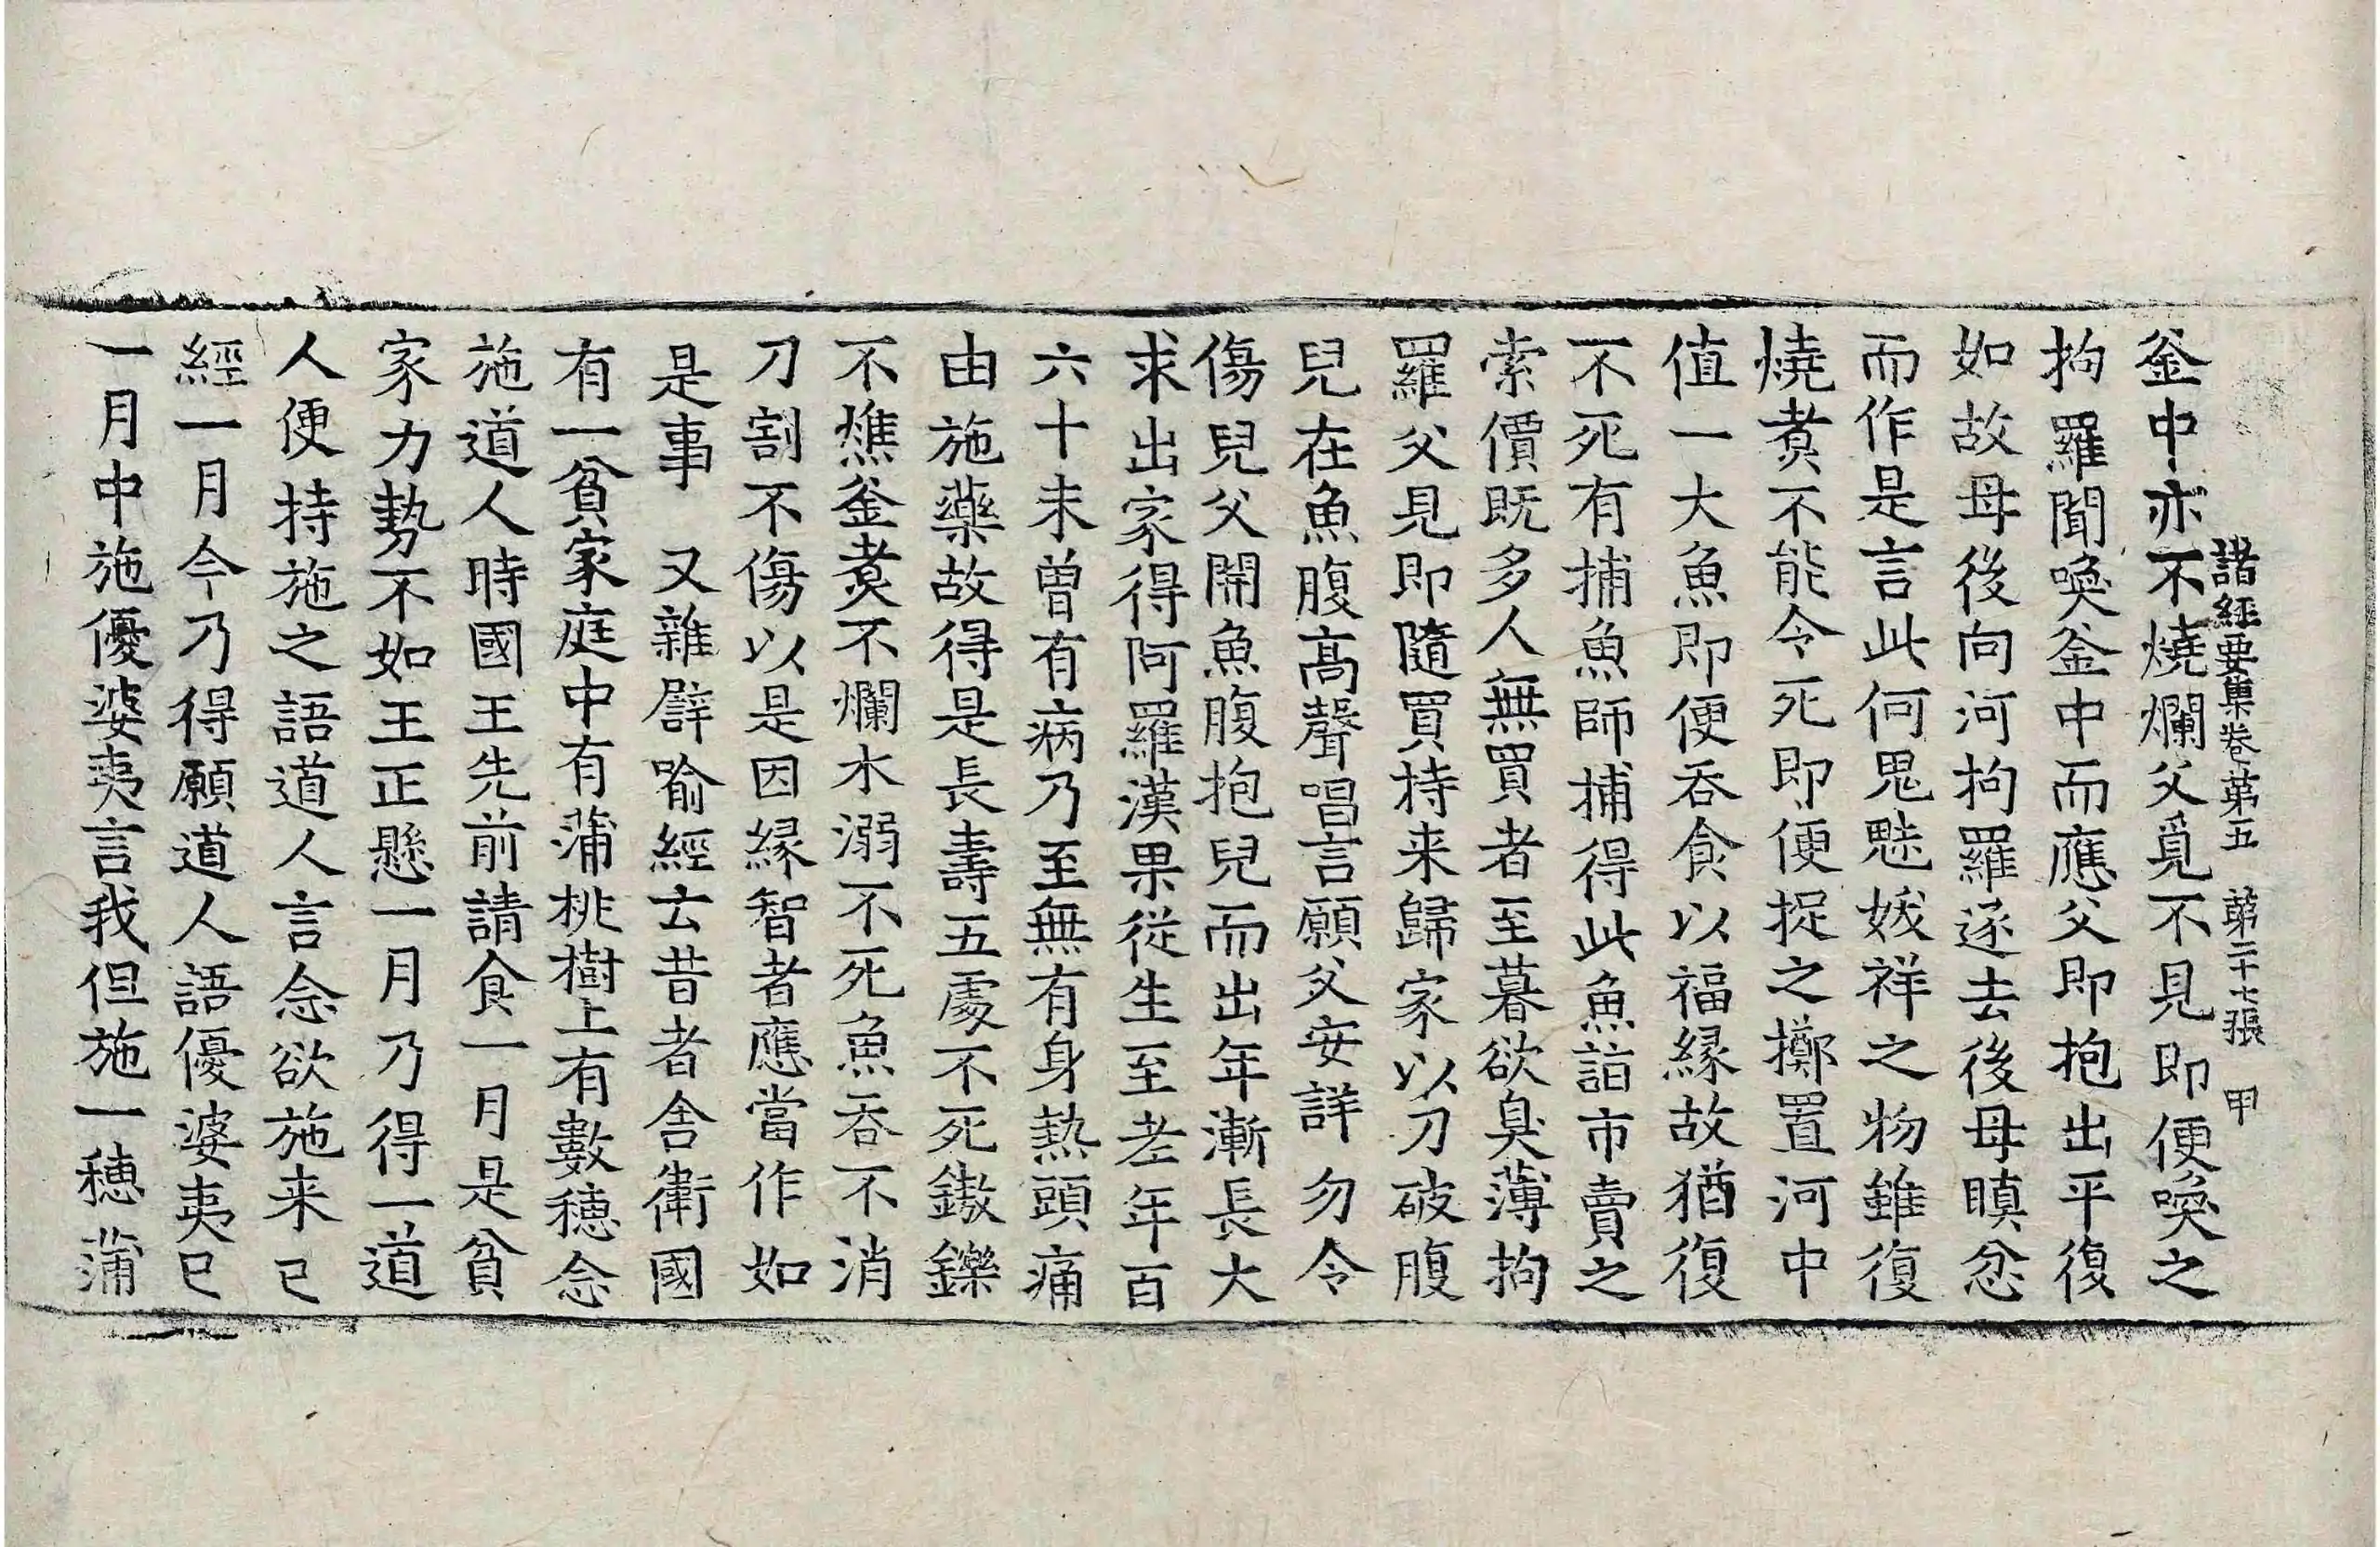 諸經要集卷第五　第二十七張　甲
釜中亦不燒爛父覓不見即便喚之
拘羅聞喚釜中而應父即抱出平復
如故母後向河拘羅逐去後母瞋忿
而作是言此何鬼魅妭祥之物雖復
燒煮不能令死即便捉之擲置河中
值一大魚即便吞食以福緣故猶復
不死有捕魚師捕得此魚詣市賣之
索價既多人無買者至暮欲臭薄拘
羅父見即隨買持来歸家以刀破腹
兒在魚腹高聲唱言願父安詳勿令
傷兒父開魚腹抱兒而出年漸長大
求出家得阿羅漢果從生至老年百
六十未曾有病乃至無有身熱頭痛
由施藥故得是長壽五處不死鏊鑠
不燋釜煑不爛水溺不死魚吞不消
刀割不傷以是因緣智者應當作如
是事　又雜譬喻經云昔者舍衛國
有一貧家庭中有蒲桃樹上有數穗念
施道人時國王先前請食一月是貧
家力勢不如王正懸一月乃得一道
人便持施之語道人言念欲施来已
經一月今乃得願道人語優婆夷已
一月中施優婆夷言我但施一穗蒲